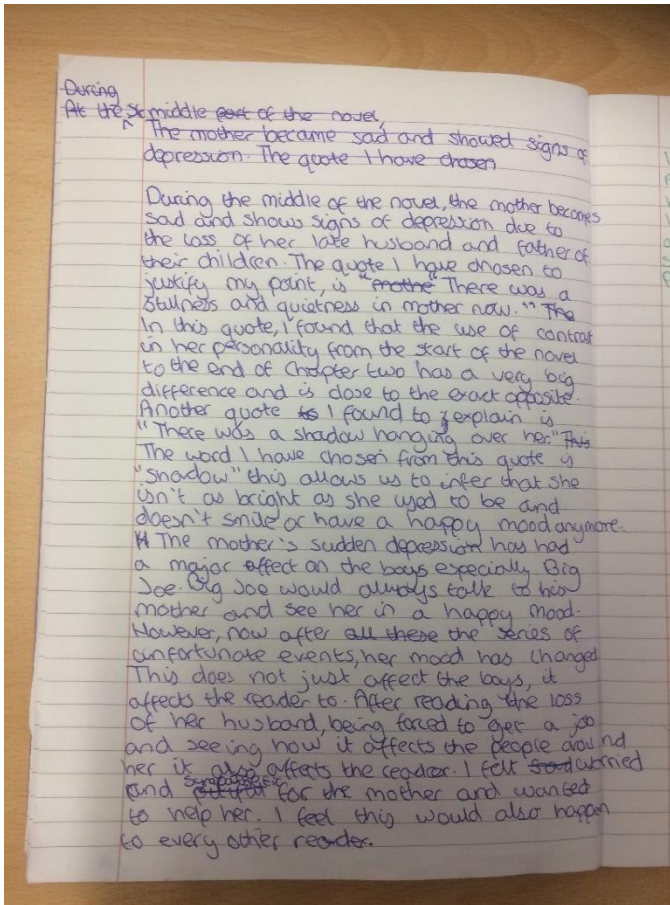 During
At the st middle part of the novel,
The mother became sad and showed signs of
depression. The quote I have chosen
During the middle of the novel, the mother becomes
sad and shows signs of depression due to
the loss of her late husband and father of
their children. The quote I have chosen to
justify my point, is "mothe" "There was a
stillness and quietness in mother now." The
In this quote, I found that the use of contrast
in her personality from the start of the novel
to the end of Chapter two has a very big
difference and is close to the exact opposite.
Another quote to I found to explain is
"There was a shadow hanging over her" This
The word I have chosen from this quote is
"shadow" this allows us to infer that she
isn't as bright as she used to be and
doesn't smile or have a happy mood anymore.
H The mother's sudden depression has had
a major effect on the boys especially Big
Joe. Big Joe would always talk to his
mother and see her in a happy mood.
However, now after all these the series of
unfortunate events, her mood has changed
This does not just affect the boys, it
affects the reader to. After reading the loss
of her husband, being forced to get a job
and seeing how it affects the people around
her it also affects the reader. I felt sad worried
and sympathetic for the mother and wanted
to help her. I feel this would also happen
to every other reader.